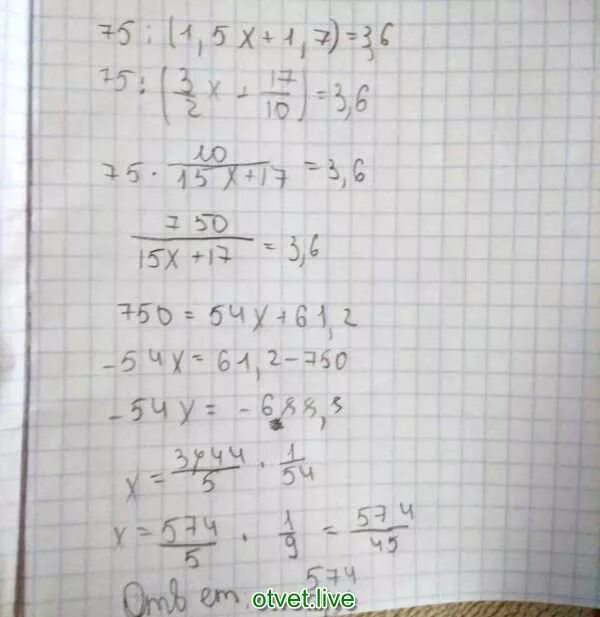 75 : (1,5x+1,7)=3,6
75:(3/2 x + 17/10)=3,6
75 · 10/15x+17 = 3,6
750/15x+17 = 3,6
750 = 54x+61,2
-54x= 61,2-750
-54x= -688,8
x= 3444/5 · 1/54
x= 574/5 · 1/9 = 574/45
Ответ 574
otvet.live